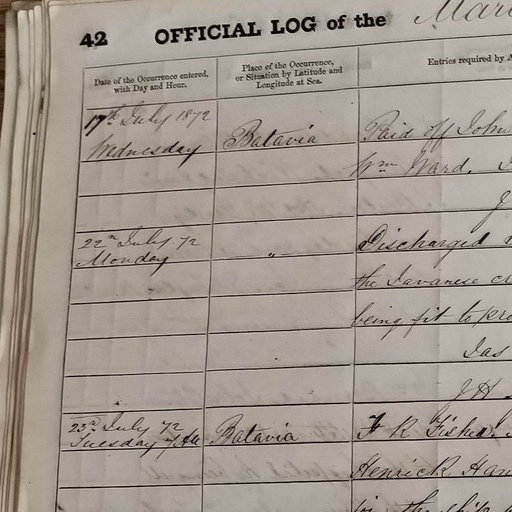 42 OFFICIAL LOG of the Mar
Date of the Occurrence entered, with Day and Hour.
Place of the Occurrence, or Situation by Latitude and Longitude at Sea.
Entries required by A
17th July 1872
Wednesday
Batavia
Paid off John
Wm Ward.
22n July 72
Monday
"
Discharged
the Javanese cr
being fit to pro
Jas
J H
23d July 72
Tuesday 7 AM
Batavia
F R Fisher
Henrick Han
for the ship